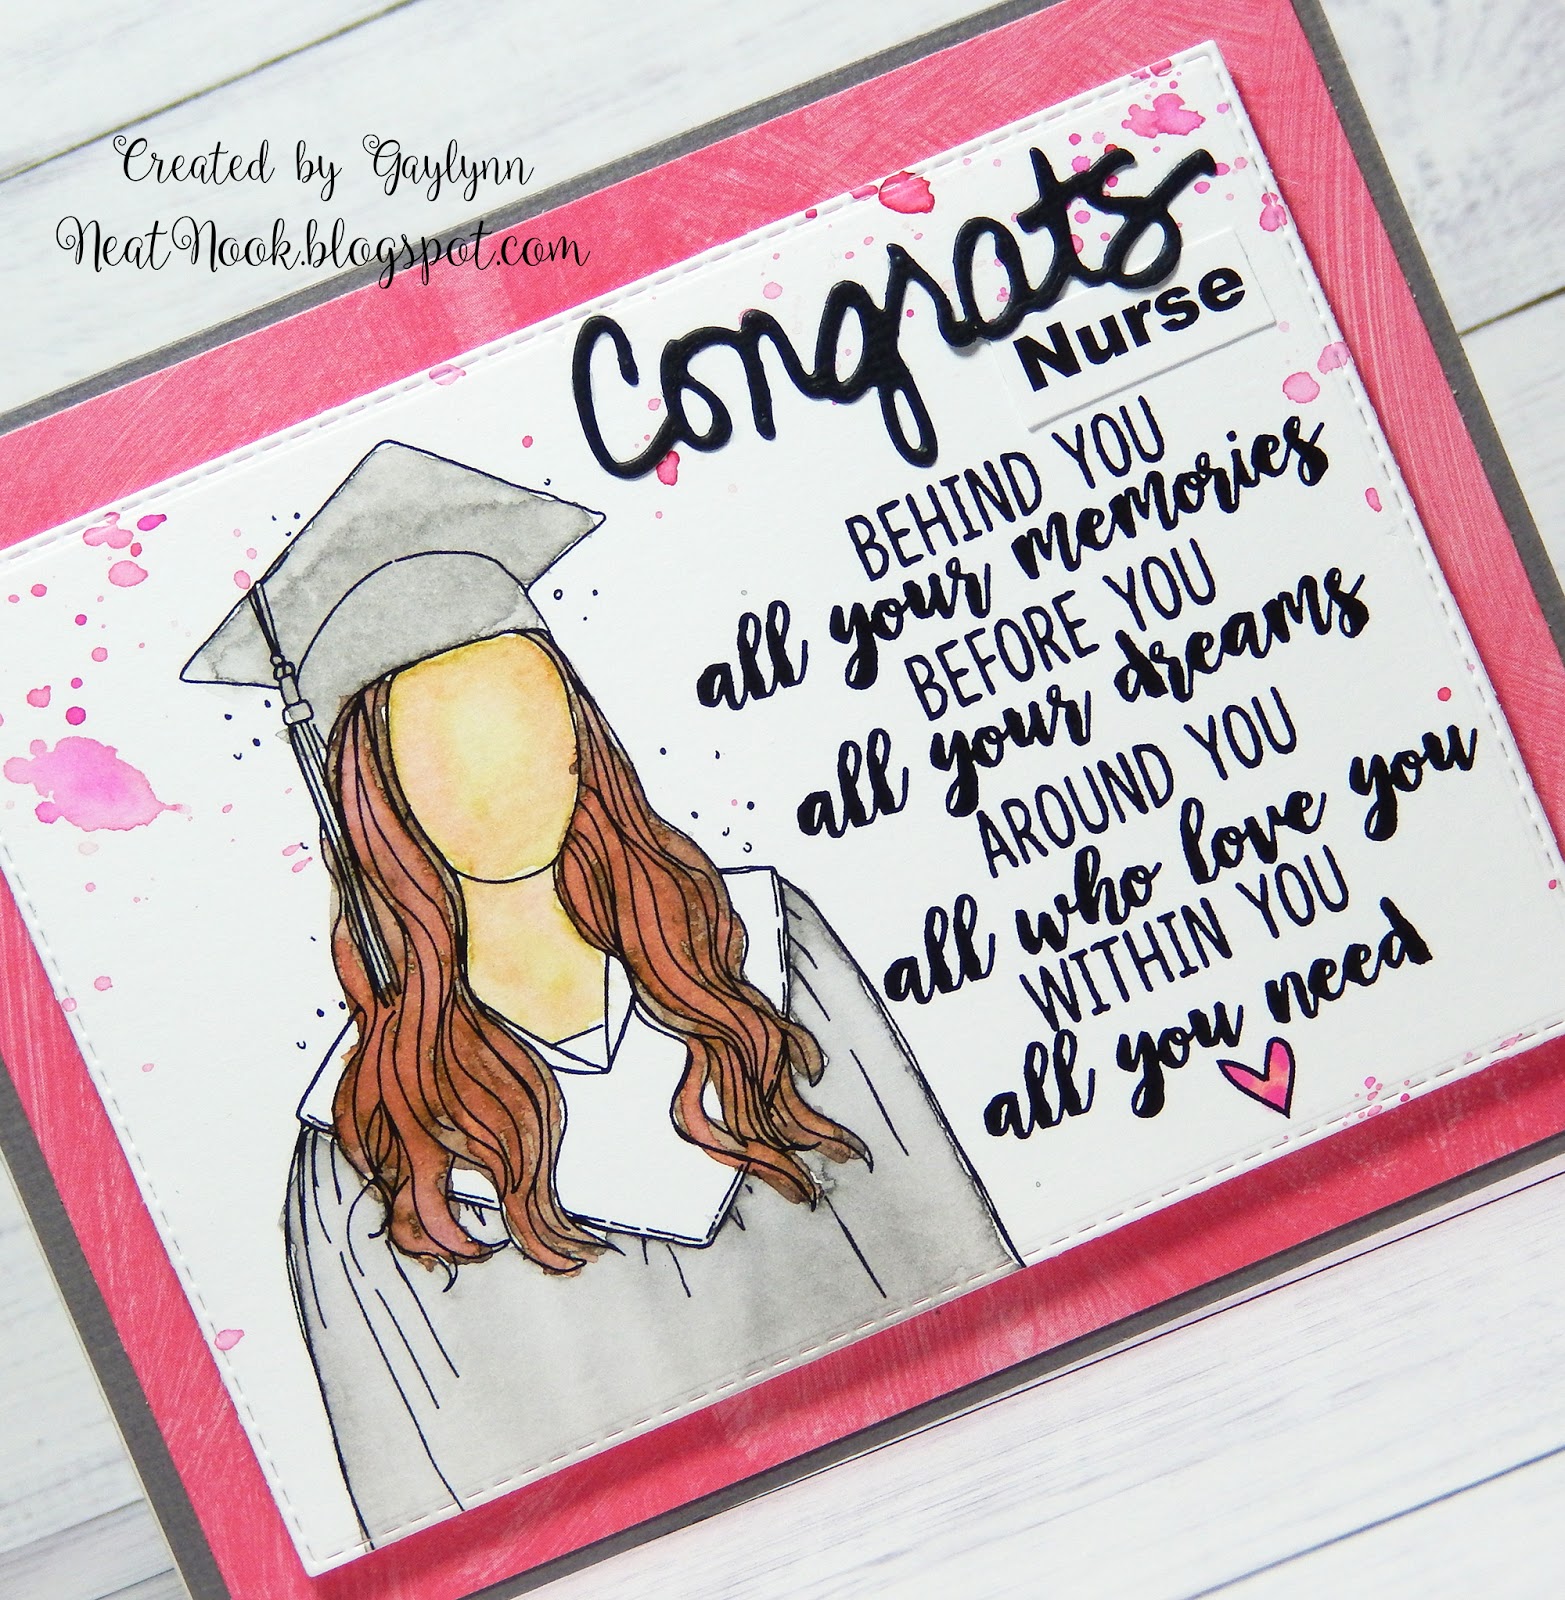 Created by Gaylynn
NeatNook.blogspot.com
Congrats
Nurse
BEHIND YOU
all your memories
BEFORE YOU
all your dreams
AROUND YOU
all who love you
WITHIN YOU
all you need